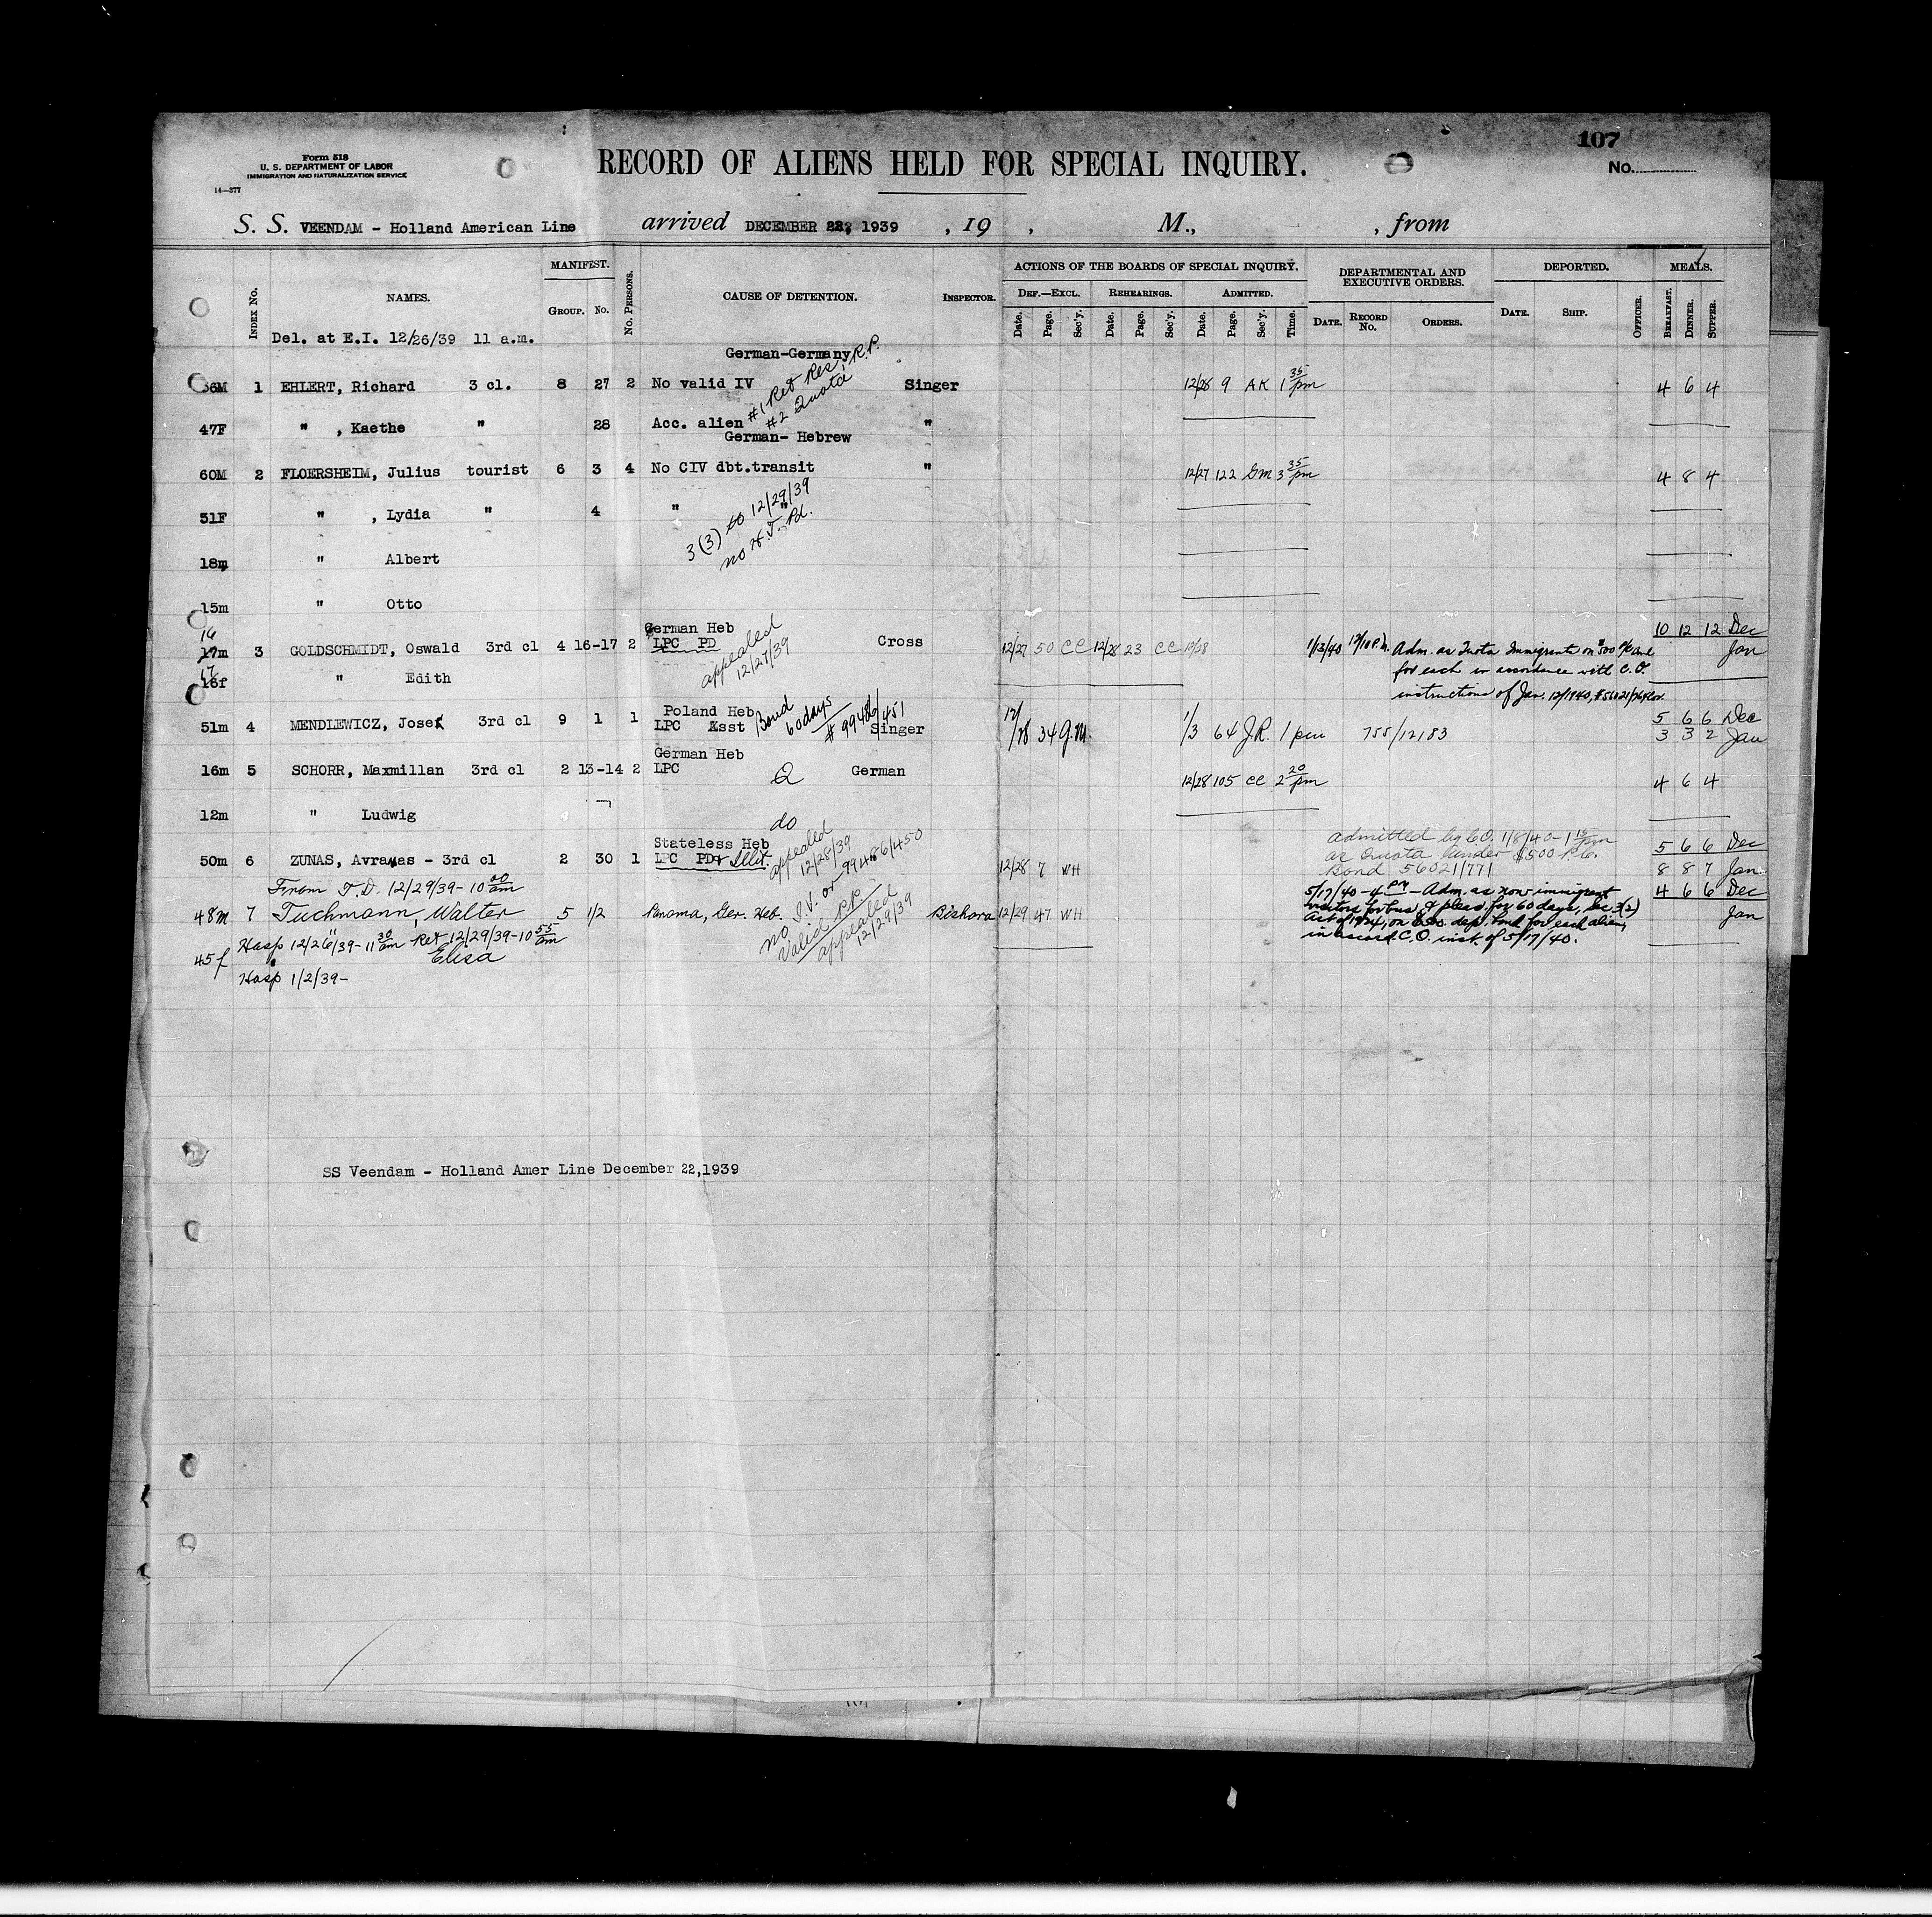 107
Form 518
U. S. DEPARTMENT OF LABOR
IMMIGRATION AND NATURALIZATION SERVICE
14—377
RECORD OF ALIENS HELD FOR SPECIAL INQUIRY.
No.
S. S. VEENDAM - Holland American Line arrived DECEMBER 22, 1939 , 19 , M., , from
INDEX No. NAMES. MANIFEST. GROUP. No. No. PERSONS. CAUSE OF DETENTION. INSPECTOR. ACTIONS OF THE BOARDS OF SPECIAL INQUIRY. DEPARTMENTAL AND EXECUTIVE ORDERS. DEPORTED. MEALS.
DEF.—EXCL. REHEARINGS. ADMITTED.
Date. Page. Sec'y. Date. Page. Sec'y. Date. Page. Sec'y. Time. DATE. RECORD No. ORDERS. DATE. SHIP. OFFICER. BREAKFAST. DINNER. SUPPER.
Del. at E.I. 12/26/39 11 a.m.
German-Germany
56M 1 EHLERT, Richard 3 cl. 8 27 2 No valid IV #1 Ret Res R.P. Singer 12/28 9 AK 1 35 pm 4 6 4
#2 Quota
47F " , Kaethe " 28 Acc. alien "
German- Hebrew
60M 2 FLOERSHEIM, Julius tourist 6 3 4 No CIV dbt.transit " 12/27 122 GM 3 35 pm 4 8 4
51F " , Lydia " 4 " "
3 (3) to 12/29/39
no H.T. Pd.
18m " Albert
15m " Otto
German Heb 10 12 12 Dec
16
17m 3 GOLDSCHMIDT, Oswald 3rd cl 4 16-17 2 LPC PD appealed 12/27/39 Cross 12/27 50 CC 12/28 23 CC 12/28 1/13/40 Adm. as Quota Immigrants on 500 for each in accordance with C.O. Jan
17
16f " Edith instructions of Jan. 12/1940,
Poland Heb
51m 4 MENDLEWICZ, Josef 3rd cl 9 1 1 LPC Asst Bond 60 days # 99486/451 Singer 12/28 34 G.M. 1/3 64 J.R. 1 pm 755/12183 5 6 6 Dec
3 3 2 Jan
German Heb
16m 5 SCHORR, Maxmillan 3rd cl 2 13-14 2 LPC Q German 12/28 105 CC 2 20 pm 4 6 4
12m " Ludwig do
Stateless Heb
50m 6 ZUNAS, Avramas - 3rd cl 2 30 1 LPC PD & Illit. appealed 12/28/39 99486/450 12/28 7 WH admitted by C.O. 1/8/40-1 15 pm 5 6 6 Dec
as Quota under $500 P.C. Bond 56021/771 8 8 7 Jan
From T.D. 12/29/39-10 00 am
48m 7 Tuchmann, Walter 5 1/2 Panama, Ger. Heb. no I.V. or Valid P.P. appealed 12/29/39 Bishara 12/29 47 WH 5/17/40-4 PM - Adm. as non immigrant visitors for bus. & pleas. for 60 days, Sec. 3(2) 4 6 6 Dec
Act of 1924, on $500. dep. bond for each alien, Jan
in accord. C.O. inst. of 5/17/40.
Hosp 12/26/39-11 30 am Ret 12/29/39-10 55 am
45f " Elisa
Hosp 1/2/39-
SS Veendam - Holland Amer Line December 22,1939